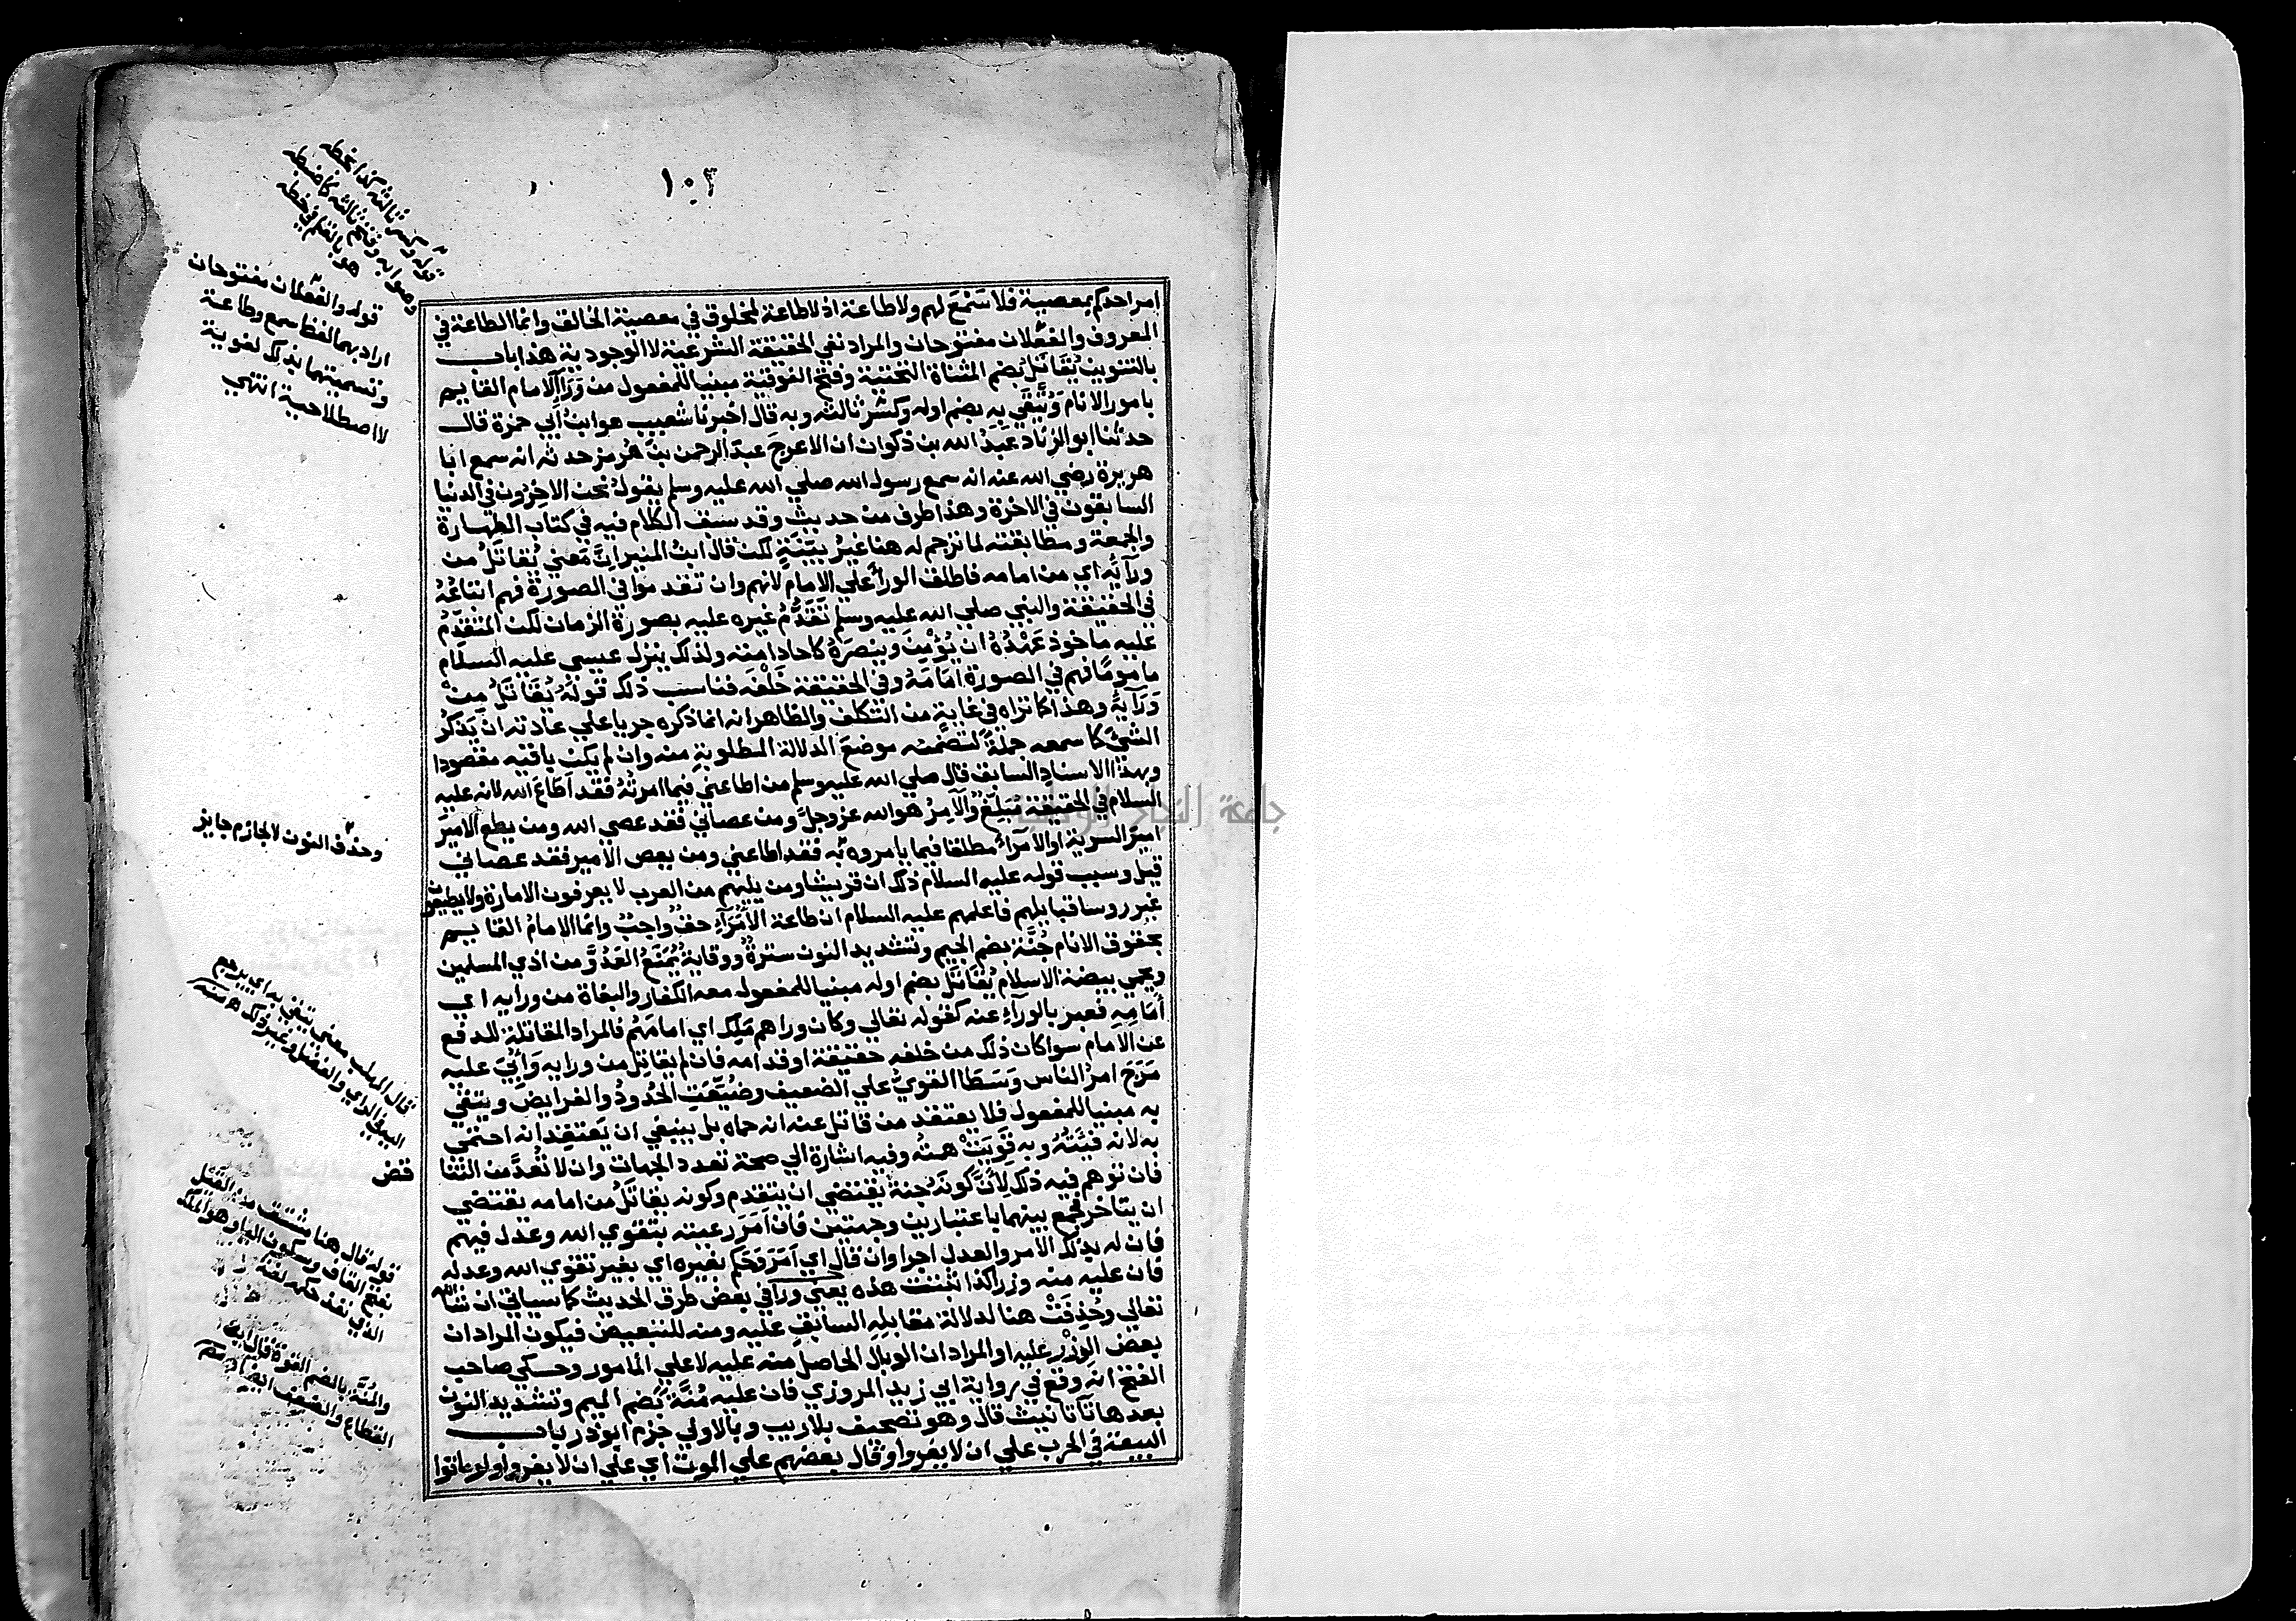 ١٠٣
قوله وكسر ثالثه كذا بخطه
وصوابه وفتح ثالثه كما ضبطه
هو بالقلم في خطه
قوله والفعلان مفتوحان
اراد بهما لفظ سمع وطاعة
وتسميتهما بذلك لغوية
لا اصطلاحية انتهي
امر احدكم بمعصية فلا سَمْعَ لهم ولا طاعة اذ لا طاعة لمخلوق في معصية الخالق وانما الطاعة في
المعروف والفعلان مفتوحان والمراد نفي الحقيقة الشرعية لا الوجودية هذا باب
بالتنوين يُقَاتَلُ بضم المثناة التحتية وفتح الفوقية مبنيا للمفعول من وَرَآءِ الامام القايم
بامور الانام وَيُتَّقَي بِهِ بضم اوله وكسر ثالثه وبه قال اخبرنا شعيب هو ابنُ أبي حمزة قال
حدثنا ابو الزناد عبدُ الله بن ذكوان ان الاعرجَ عبدَ الرحمن بنَ هُرمز حدثه انه سمع ابا
هريرة رضي الله عنه انه سمع رسول الله صلي الله عليه وسلم يقولُ نحن الاخِرُون في الدنيا
السابقون في الاخرة وهذا طرف من حديث وقد سبق الكلام فيه في كتاب الطهارة
والجمعة ومطابقته لما ترجم له هنا غيرُ بيّنَةٍ لكن قال ابنُ المنير اِنَّ مَعني يُقاتَلُ من
ورآيِه اي من امامه فاطلق الورآ علي الامام لانهم وان تقدموا في الصورة فهم اتباعُهُ
في الحقيقة والنبي صلي الله عليه وسلم تَقَدَّمُ غيره عليه بصورة الزمان لكن المتقدّمُ
عليه ماخوذ عَهْدُهُ ان يُؤْمِنَ وينصرَهُ كاحاد امته ولذلك ينزل عيسي عليه السلام
ماموما فهم في الصورة امَامَهُ وفي الحقيقة خَلْفَه فناسب ذلك قولَهُ يُقَاتَلُ مِنْ
وَرَآيِهِ وهذا كما تراه في غاية من التكلف والظاهر انه انما ذكره جريا علي عادته ان يَذكرُ
الشيَ كما سمعه جملةً لتضَمّنه موضعَ الدلالة المطلوبةِ منه وان لم يكن باقيه مقصودا
وبهذا الاسنادِ السابقِ قال صلي الله عليه وسلم من اطاعني فيما امرتُهُ فقد اَطَاعَ الله لانه عليه
السلام في الحقيقة مُبَلِّغٌ والآمِرُ هو الله عز وجلّ ومن عصاني فقد عصي الله ومن يطع الاميرَ
اميرَ السرية او الامرآء مطلقا فيما يامروه به فقد اطاعني ومن يعص الامير فقد عصاني
وحذف النون لا لجازم جايز
قيل وسبب قوله عليه السلام ذلك ان قريشا ومن يليهم من العرب لا يعرفون الامارة ولا يطيعون
غير روسا قبايلهم فاعلمهم عليه السلام ان طاعة الاُمَرآءِ حقٌ واجبٌ وانما الامامُ القايم
بحقوق الانام جُنَّة بضم الجيم وتشديد النون سترةٌ ووقايةٌ يَمْنَعُ العَدُوَّ من اذي المسلمين
ويحمي بيضة الاسلام يُقَاتَلُ بضم اوله مبنيا للمفعول معه الكفار والبغاة من ورايه اي
أَمَامِهِ فعبر بالورآءِ عنه كقوله تعالي وكان وراهم مَلِك اي امامَهُم فالمراد المقاتلة للدفع
عن الامام سوا كان ذلك من خلفه حقيقة او قدامه فان لم يقاتِل من ورايه وَأُتِيَ عليه
مَرَجَ امرُ الناس وَسَطَا القويُّ علي الضعيف وضُيّعَتِ الحُدودُ والفرايضُ ويتقي
به مبنيا للمفعول فلا يعتقد من قاتل عنه انه حماه بل ينبغي ان يَعتقِد انه احتمي
به لانه فِئَتُهُ وبه قَوِيَتْ همتُه وفيه اشارة الي صحة تعدد الجهات وان لا تُعدَّ من التنا
قض
فان توهم فيه ذلك لِأنَّ كَونَهُ جُنةً يقتضي ان يتقدم وكونه يقاتَلُ من امامه يقتضي
ان يتاخر فجمع بينهما باعتبارين وجهتين فان اَمَرَ رعيته بتقوي الله وعدل فيهم
فان له بذلك الامر والعدل اجرا وان قال اي اَمَرَ وَحَكَم بغيره اي بغير تقوي الله وعدله
فان عليه منه وزرا كذا ثبتت هذه يعني وزرا في بعض طرق الحديث كما سياتي ان شا الله
تعالي وحُذِفَتْ هنا لدلالة مقابِلِهِ السابقِ عليه ومنه للتبعيض فيكون المراد ان
بعض الوِزْرِ عليه او المراد ان الوبال الحاصل منه عليه لا علي المامور وحكي صاحب
الفتح انه وقع في رواية ابي زيد المروزي فان عليه مُنَّةً بضم الميم وتشديد النون
بعدها تآ تانيث قال وهو تصحيف بلا ريب وبالاولي جزم ابو ذر باب
البيعة في الحرب علي ان لا يفروا وقال بعضهم علي الموت اي علي ان لا يفروا ولو ماتوا
قال المهلب معني يتقي به اي يرجع
اليه في الراي والفضل وغير ذلك
قوله قال هنا مشتق من القَيْل
بفتح القاف وسكون اليا وهو الملك
الذي نفذ حكمه
والمُنَّة بالضم القوة قاله ابن
القطاع
جامعة النجاح الوطنية